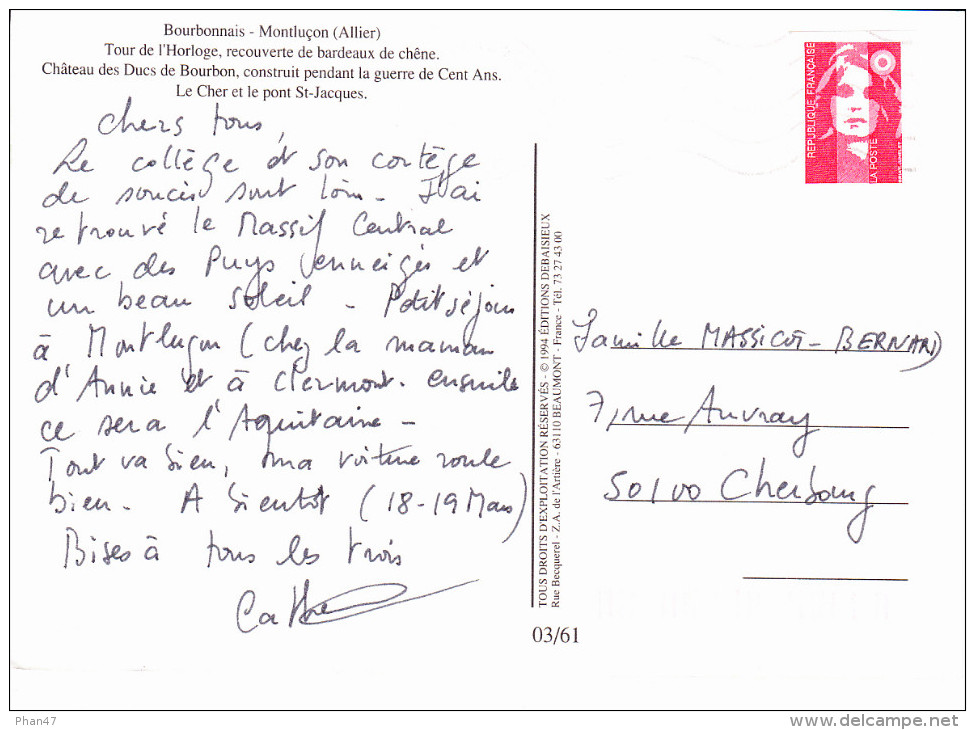 Bourbonnais - Montluçon (Allier)
Tour de l'Horloge, recouverte de bardeaux de chêne.
Château des Ducs de Bourbon, construit pendant la guerre de Cent Ans.
Le Cher et le pont St-Jacques.
Chers tous,
Le collège et son cortège
de soucis sont loin - J'ai
retrouvé le Massif Central
avec des Puys enneigés et
un beau soleil - Petit séjour
à Montluçon (chez la maman
d'Annie et à Clermont. ensuite
ce sera l'Aquitaine -
Tout va bien, ma voiture roule
bien. A bientôt (18-19 Mars)
Bises à tous les trois
Cath
TOUS DROITS D'EXPLOITATION RÉSERVÉS - © 1994 ÉDITIONS DEBAISIEUX
Rue Becquerel - Z.A. de l'Artière - 63110 BEAUMONT - France - Tél. 73 27 43 00
03/61
REPUBLIQUE FRANÇAISE
LA POSTE
Famille MASSICOT-BERNARD
7, rue Auvray
50100 Cherbourg
Phan47
www.delcampe.net